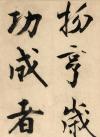 亨歲
功成者